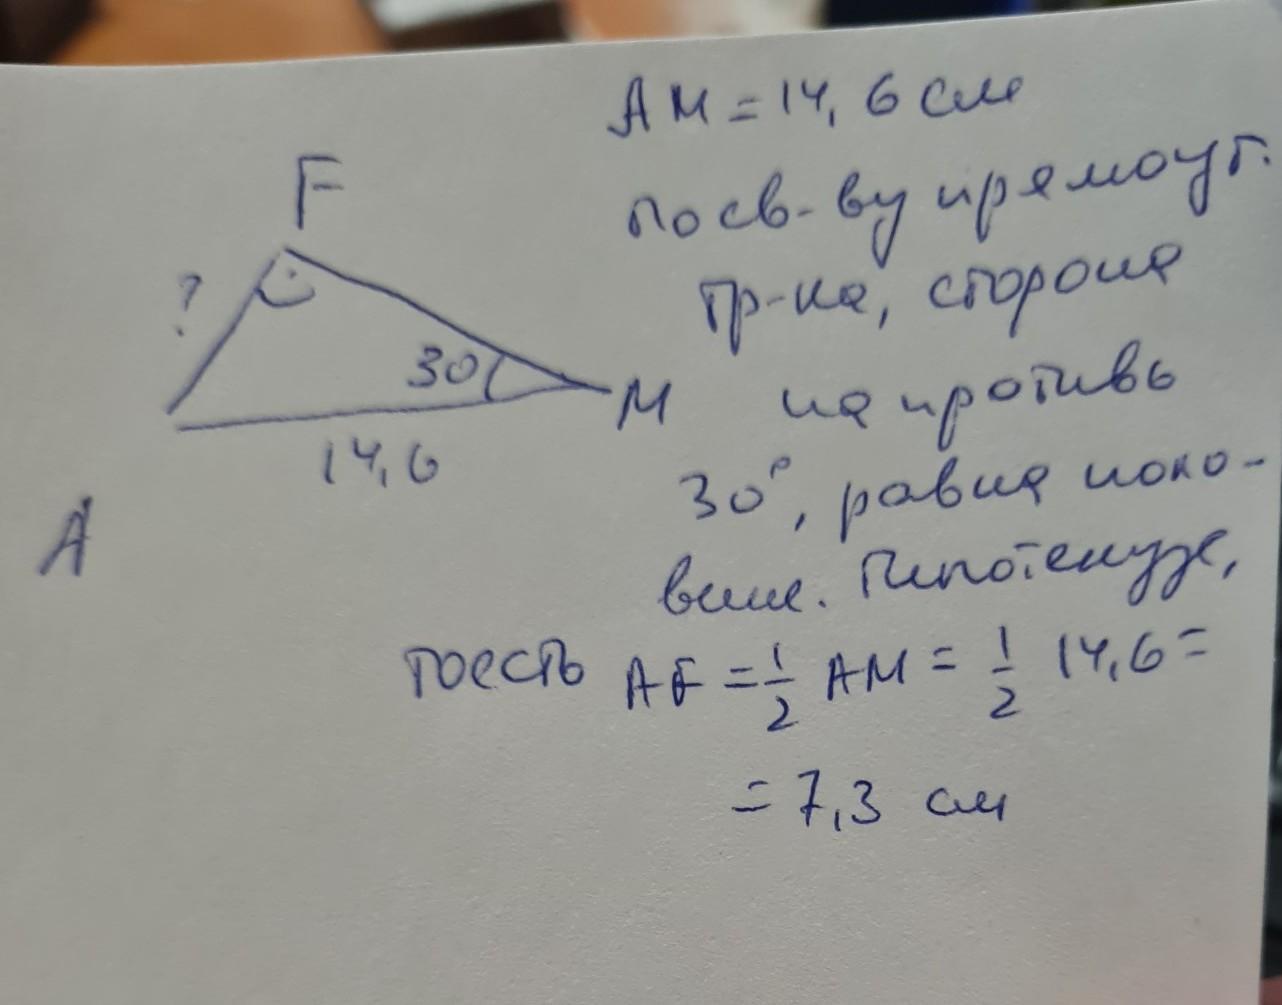 AM = 14,6 см
F
по св-ву прямоуг.
?
тр-ка, сторона
30
M
напротивь
14,6
30°, равна поло-
A
вине. Гипотенузе,
тоесть AF = 1/2 AM = 1/2 14,6 =
= 7,3 см